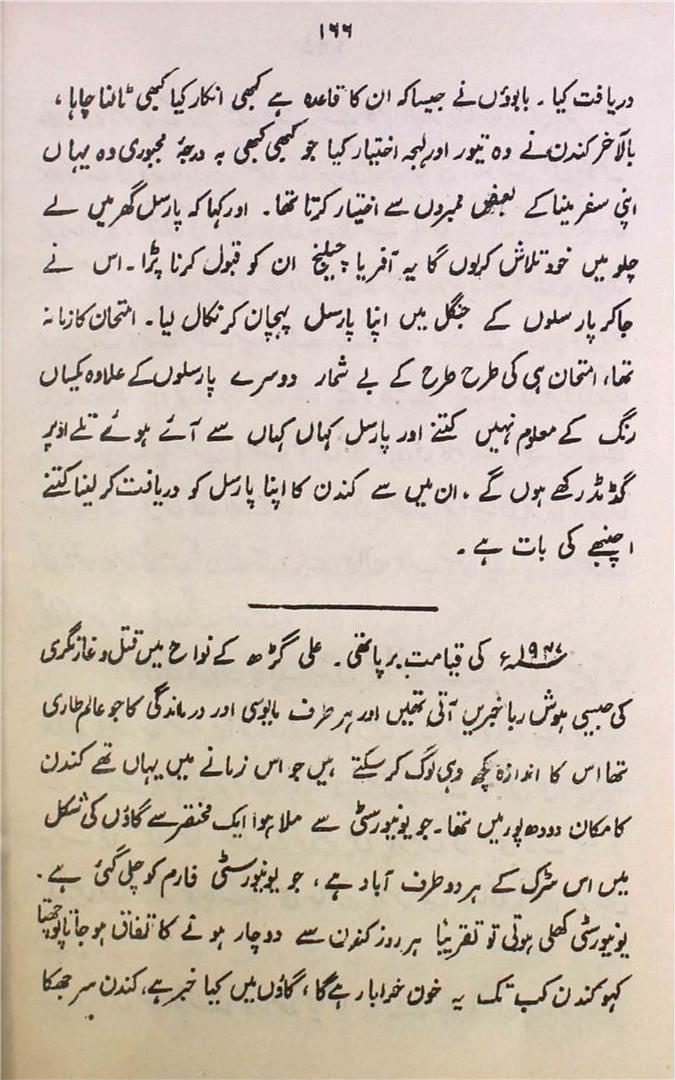 ۱۶۶
دریافت کیا ۔ بابوؤں نے جیسا کہ ان کا قاعدہ ہے کبھی انکار کیا کبھی ٹالنا چاہا ،
بالآخر کندن نے وہ تیور اور لہجہ اختیار کیا جو کبھی کبھی بہ درجۂ مجبوری وہ یہاں
اپنی سفر مینا کے بعض ممبروں سے اختیار کرتا تھا ۔ اور کہا کہ پارسل گھر میں لے
چلو میں خود تلاش کرلوں گا یہ آفر یا چیلنج ان کو قبول کرنا پڑا ۔ اس نے
جاکر پارسلوں کے جنگل میں اپنا پارسل پہچان کر نکال لیا ۔ امتحان کا زمانہ
تھا، امتحان ہی کی طرح طرح کے بے شمار دوسرے پارسلوں کے علاوہ یکساں
رنگ کے معلوم نہیں کتنے اور پارسل کہاں کہاں سے آئے ہوئے تلے اوپر
گڈمڈ رکھے ہوں گے ، ان میں سے کندن کا اپنا پارسل کو دریافت کر لینا کتنے
اچنبھے کی بات ہے ۔
۱۹۴۷ء کی قیامت برپا تھی ۔ علی گڑھ کے نواح میں قتل و غارتگری
کی جیسی ہوش ربا خبریں آتی تھیں اور ہر طرف مایوسی اور درماندگی کا جو عالم طاری
تھا اس کا اندازہ کچھ وہی لوگ کر سکتے ہیں جو اس زمانے میں یہاں تھے کندن
کا مکان دودھ پور میں تھا ۔ جو یونیورسٹی سے ملا ہوا ایک مختصر سے گاؤں کی شکل
میں اس سڑک کے ہر دو طرف آباد ہے ، جو یونیورسٹی فارم کو چلی گئی ہے ۔
یونیورسٹی کھلی ہوتی تو تقریباً ہر روز کندن سے دوچار ہونے کا اتفاق ہو جاتا پوچھتا
کہو کندن کب تک یہ خون خرابا رہے گا ، گاؤں میں کیا خبر ہے ، کندن سر جھکا